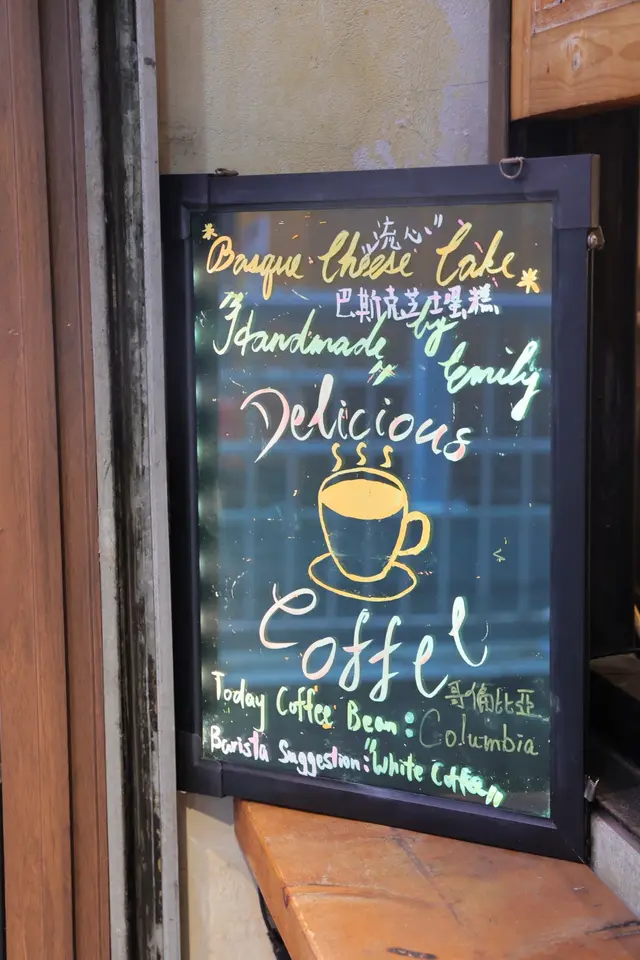 "流心"
Basque Cheese Cake
巴斯克芝士蛋糕
"Handmade" by Emily
Delicious
Coffee
Today Coffee Bean: 哥倫比亞 Columbia
Barista Suggestion: "White Coffee"